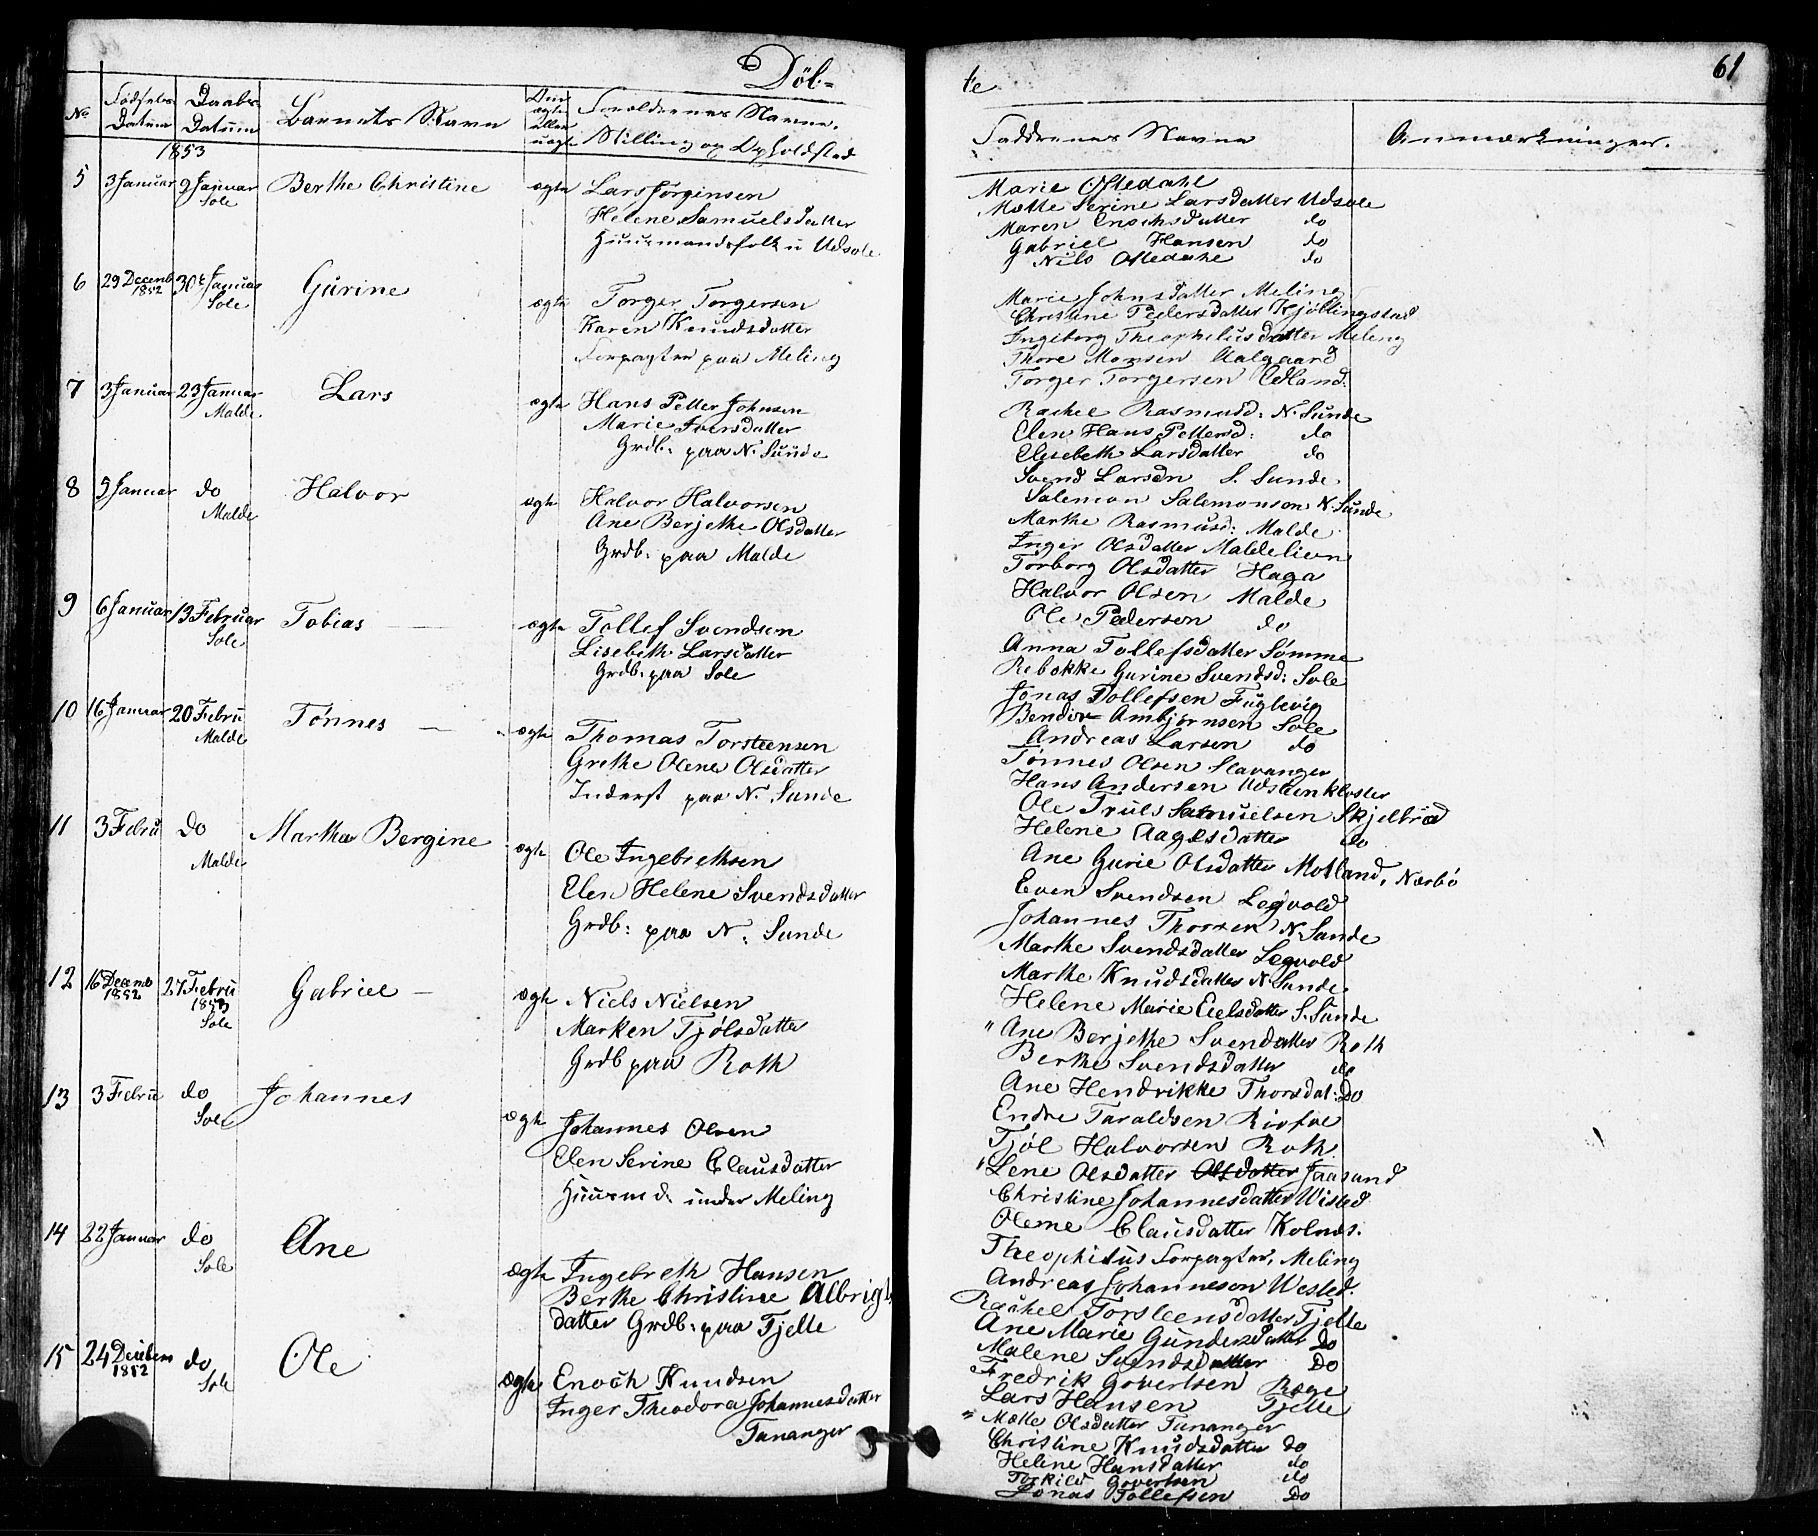 Döb-
No
Fødsels-
Datum
Daabs-
Datum
Barnets Navn
Om
ægte
eller
uægte
Forældrenes Navne,
Stilling og Opholdsted
1853
5 3 Januar 9 Januar Berthe Christine ægte Lars Jørgensen
Sole
Helene Samuelsdatter
Huusmandsfolk u Udsole
6 29 Decemb 30t Januar Gurine ægte Torger Torgersen
1852 Sole
Karen Knudsdatter
Forpagter paa Meling
7 3 Januar 23 Januar Lars ægte Hans Petter Johnsen
Malde Marie Iversdatter
Grdb. paa N. Sunde
8 9 Januar do Halvor ægte Halvor Halvorsen
Malde Ane Berjethe Olsdatter
Grdb. paa Malde
9 6 Januar 13 Februar Tobias — ægte Tollef Svendsen
Sole Lisebeth Larsdatter
Grdb. paa Sole
10 16 Januar 20 Febru Tønnes — ægte Thomas Torsteensen
Malde Grethe Olene Olsdatter
Inderst paa N. Sunde
11 3 Febru do Martha Bergine ægte Ole Ingebrethsen
Malde Elen Helene Svendsdatter
Grdb: paa N: Sunde
12 16 Decemb 27 Febru Gabriel — ægte Niels Nielsen
1852 1853
Sole Marken Tjølsdatte
Grdb paa Roth
13 3 Febru do Johannes ægte Johannes Olsen
Sole Elen Serine Clausdatter
Huusmd. under Meling
14 22 Januar do Ane ægte Ingebreth Hansen
Sole Berthe Christine Albrigt
datter Grdb. paa Tjelte
15 24 Decibem do Ole ægte Enoch Knudsen
1852 Sole Inger Theodora Johannesdatter
Tananger
te
61
Faddrenes Navne
Anmærkninger.
Marie Oftedahl
Mette Serine Larsdatter Udsole
Maren Enochsdatter do
Gabriel Hansen do
Nils Oftedahl do
Marie Johnsdatter Meling
Christine Pedersdatter Kjøllingstad
Ingeborg Theophilusdatter Meling
Thore Monsen Aalgaard
Torger Torgersen Edland.
Rachel Rasmusd: N. Sunde
Elen Hans Pettersd: do
Elisebeth Larsdatter do
Svend Larsen S. Sunde
Salemon Salemonson N. Sunde
Marthe Rasmusd: Malde
Inger Olsdatter Maldelien
Torborg Olsdatter Haga
Halvor Olsen Malde
Ole Pedersen do
Anna Tollefsdatter Sømme
Rebekke Gurine Svendsd: Sole
Jonas Tollefsen Fuglevig
Bendix Ambjørnsen Sole
Andreas Larsen do
Tønnes Olsen Stavanger
Hans Andersen Udsteenkloster
Ole Truls Samuelsen Skjelbred
Helene Aagesdatter do
Ane Gurie Olsdatter Motland, Nærbø
Even Svendsen Legvold
Johannes Thorsen N. Sunde
Marthe Svendsdatter Legvold
Marthe Knudsdatter N. Sunde.
Helene Marie Eielsdatter S. Sunde
" Ane Berjethe Svendatter Roth
Berthe Svendsdatter do
Ane Hendrikke Thorsdat: Do
Endre Taraldsen Risfoe
Tjøl Halvorsen Roth
" Lene Olsdatter Olsdatter Jaasund
Christine Johannesdatter Wisted
Oleme Clausdatter Kolnæs.
Theophilus Forpagter, Meling
Andreas Johanneson Wested.
Rachel Torsteensdatter Tjelte
Ane Marie Gundersdatter Do
Malene Svendsdatter Do
Fredrik Govertsen Ræge
Lars Hansen Tjelte
" Mette Olsdatter Tananger
Christine Knudsdatter do
Helene Hansdatter do
Torkild Govertsen do
Jonas Tollefsen Do